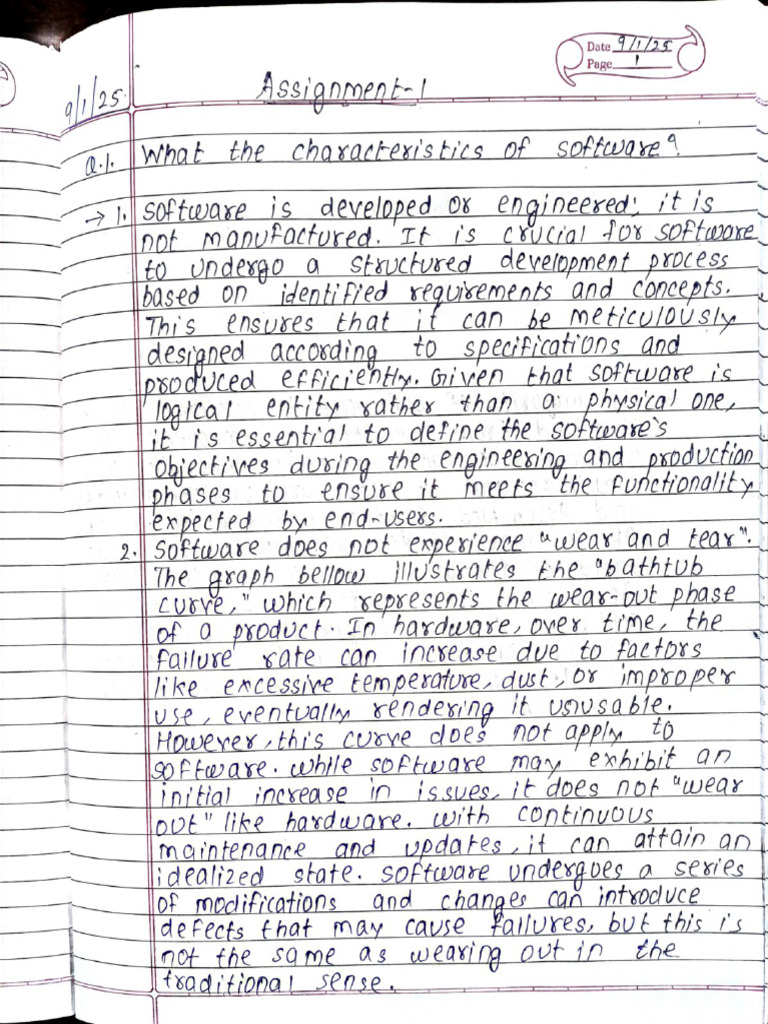 Date 9/1/25
Page 1
9/1/25
Assignment-1
Q.1. What the characteristics of software?
→ 1. Software is developed or engineered; it is
not manufactured. It is crucial for software
to undergo a structured development process
based on identified requirements and concepts.
This ensures that it can be meticulously
designed according to specifications and
produced efficiently. Given that software is
logical entity rather than a physical one,
it is essential to define the software's
objectives during the engineering and production
phases to ensure it meets the functionality
expected by end-users.
2. Software does not experience "wear and tear".
The graph bellow illustrates the "bathtub
curve," which represents the wear-out phase
of a product. In hardware, over time, the
failure rate can increase due to factors
like excessive temperature, dust, or improper
use, eventually rendering it unusable.
However, this curve does not apply to
software. While software may exhibit an
initial increase in issues, it does not "wear
out" like hardware. With continuous
maintenance and updates, it can attain an
idealized state. Software undergoes a series
of modifications and changes can introduce
defects that may cause failures, but this is
not the same as wearing out in the
traditional sense.